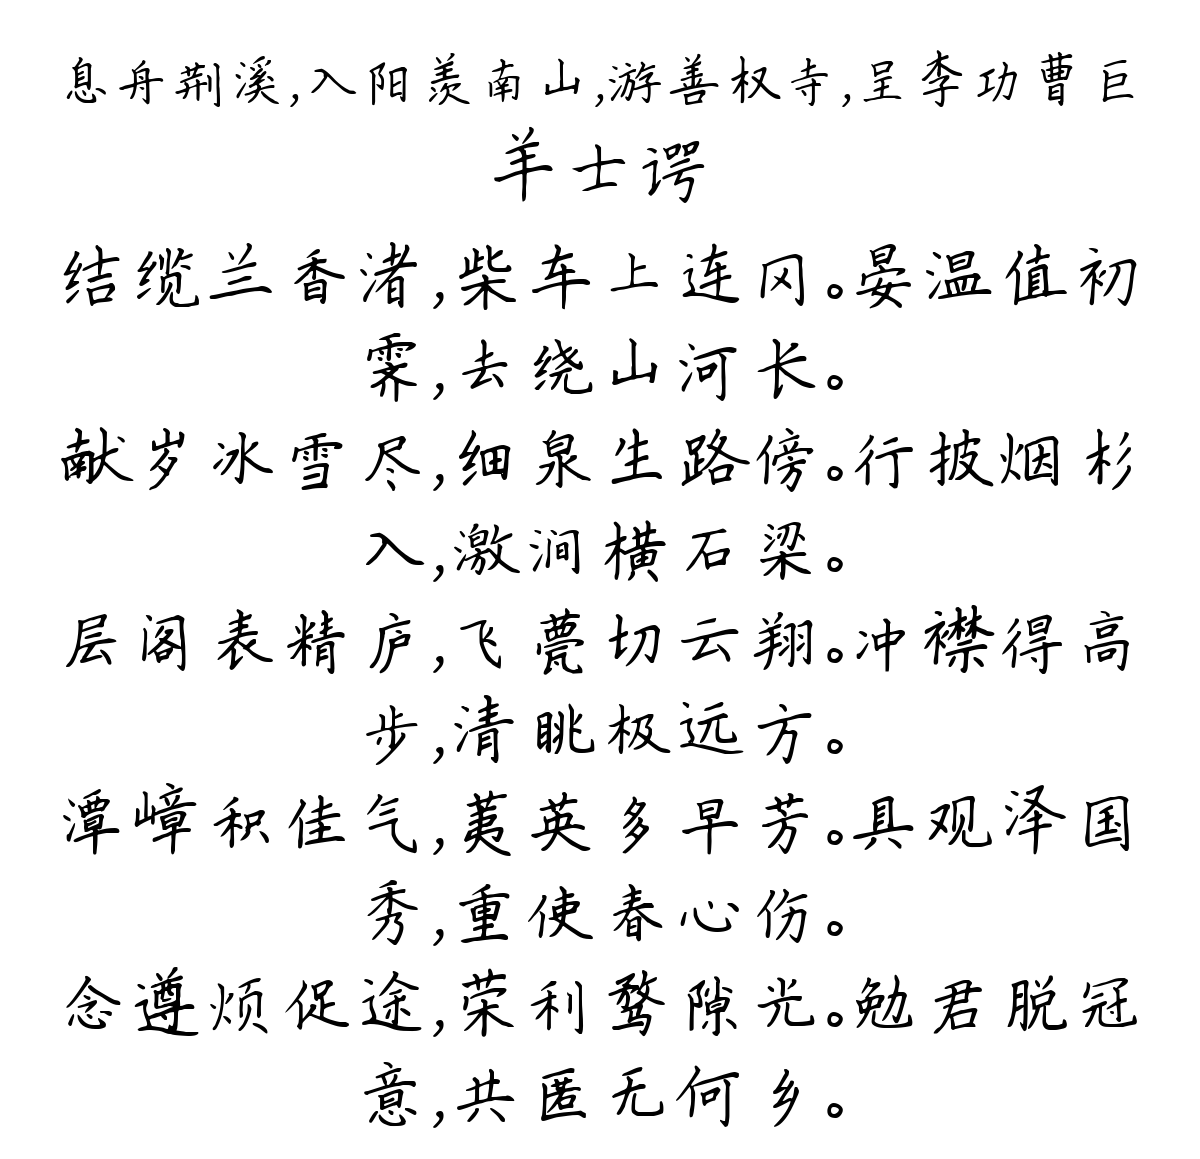 息舟荆溪,入阳羡南山,游善权寺,呈李功曹巨
羊士谔
结缆兰香渚,柴车上连冈。晏温值初
霁,去绕山河长。
献岁冰雪尽,细泉生路傍。行披烟杉
入,激涧横石梁。
层阁表精庐,飞甍切云翔。冲襟得高
步,清眺极远方。
潭嶂积佳气,荑英多早芳。具观泽国
秀,重使春心伤。
念遵烦促途,荣利骛隙光。勉君脱冠
意,共匿无何乡。